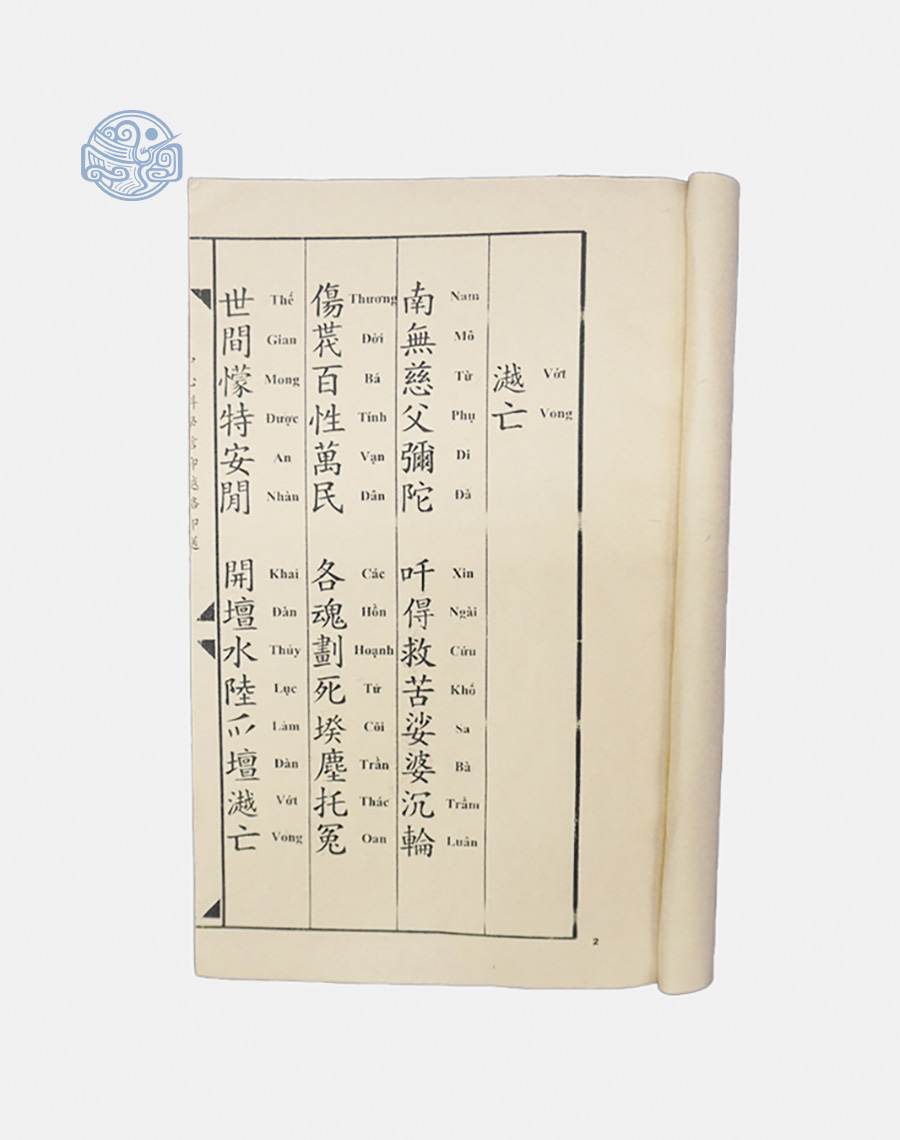 𣾼亡
Vớt Vong
南無慈父彌陀 吀得救苦娑婆沉輪
Nam Mô Từ Phụ Di Đà Xin Ngài Cứu Khổ Sa Bà Trầm Luân
傷𠁀百性萬民 各魂劃死㙺塵托冤
Thương Đời Bá Tính Vạn Dân Các Hồn Hoạnh Tử Cõi Trần Thác Oan
世間懞特安閒 開壇水陸爫壇𣾼亡
Thế Gian Mong Được An Nhàn Khai Đàn Thủy Lục Làm Đàn Vớt Vong
2